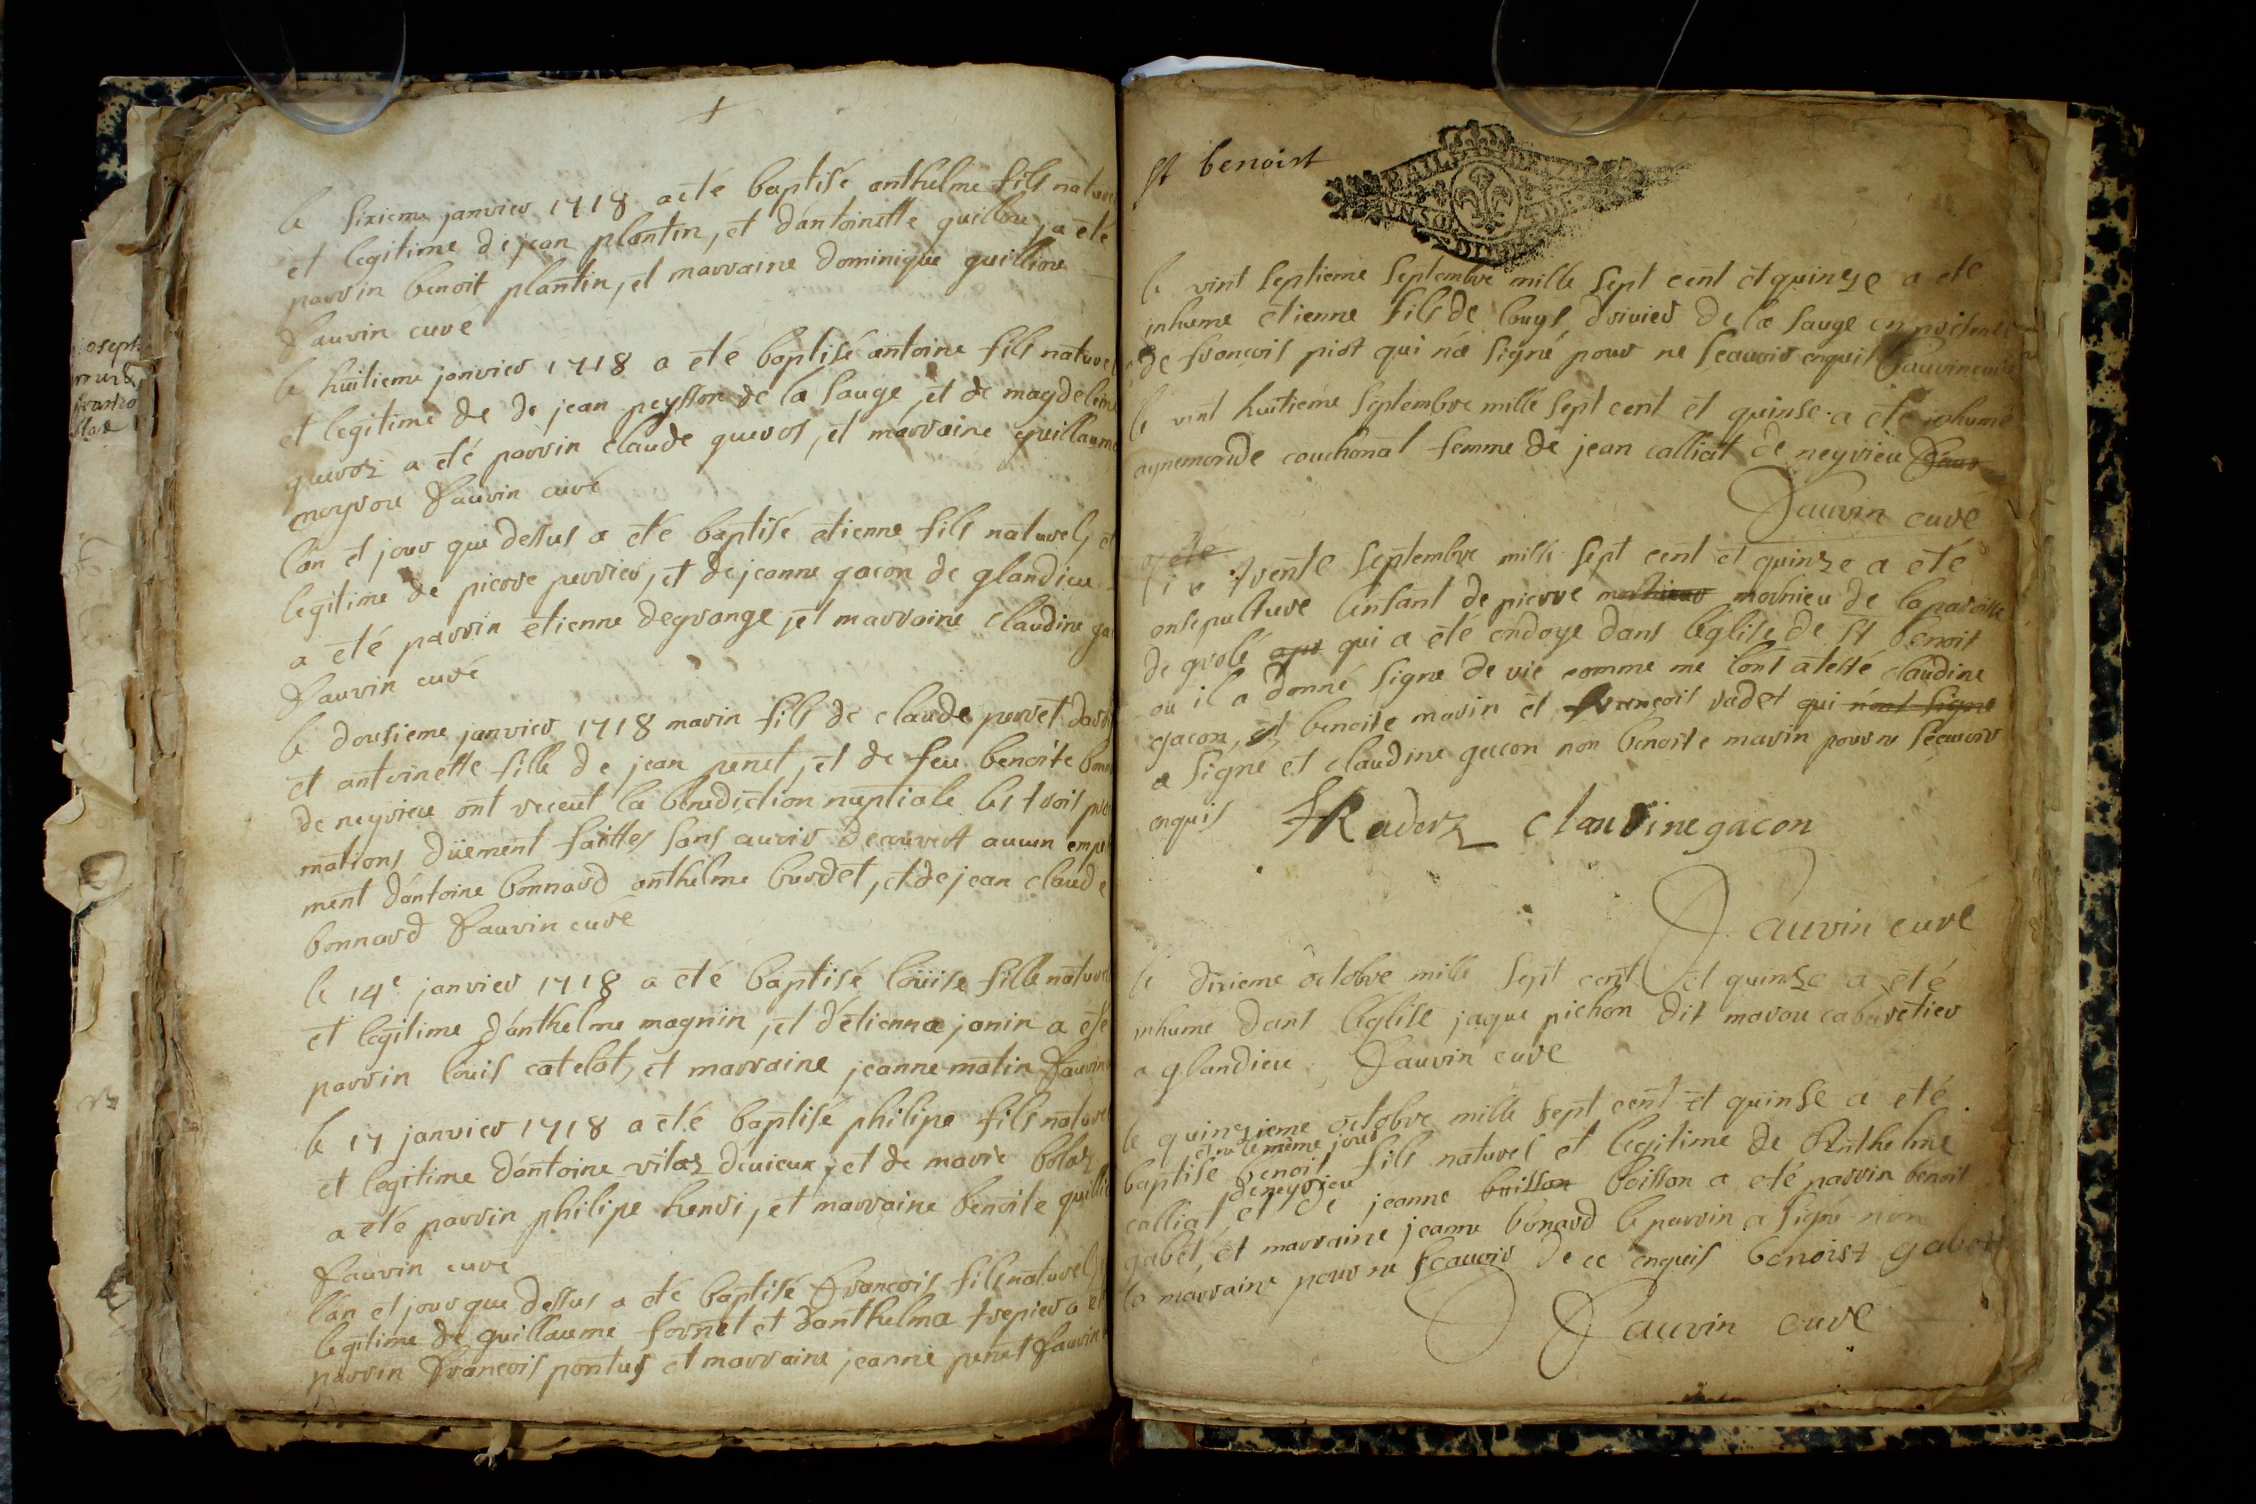 le sixieme janvier 1718 a eté baptisé anthelme fils nature
et legitime de jean plantin, et dantoinette quillon, a eté
parrin benoit plantin, et marraine dominique quillion
fauvin curé
le huitieme janvier 1718 a eté baptisé antoine fils naturel
et legitime de de jean peysson de la sauge, et de magdeleine
quevoz a eté parrin claude quevos, et marraine guillaume
meyrou fauvin curé
lan et jour que dessus a eté baptisé etienne fils naturel, et
legitime de pierre perrier, et de jeanne gacon de glandieu
a eté parrin etienne degrange, et marraine claudine ga
fauvin curé
le dousieme janvier 1718 marin fils de claude pervet
et antoinette fille de jean penet, et de feu benoite
de neyrieu ont receut la benediction nuptiale les trois pro
mations düement faittes sans avoir decouvert aucun empe
ment dantoine bonnard anthelme burdet, et de jean claude
bonnard fauvin curé
le 14e janvier 1718 a eté baptisé loüise fille nature
et legitime d'anthelme magnin, et détienna janin a eté
parrin loüis catelot, et marraine jeanne matin fauvin
le 17 janvier 1718 a eté baptisé philipe fils nature
et legitime dantoine vitoz devieux, et de marie boloz
a eté parrin philipe henri, et marraine benoite quilli
fauvin curé
lan et jour que dessus a eté baptisé françois fils naturel
legitime de guillaume fornet et danthelma trepier a et
parrin françois pontus et marraine jeanne penet fauvin
joseph
st benoist
le vint septieme septembre mille sept cent et quinze a eté
inhume etienne fils de louys drivier de la sauge en presence
de françois piot qui na signé pour ne scavoir enquis fauvin curé
le vint huitieme septembre mille sept cent et quinse a eté inhumé
aynemonde couchonat femme de jean calliat de neyrieu fauv
fauvin curé
a eté
trente septembre mille sept cent et quinze a eté
ensepulture lenfant de pierre mornieu de la paroisse
de grolé qui a eté ondoye dans leglise de st benoit
ou il a donné signe de vie comme me lont atesté claudine
gacon, et benoite marin et françois radet qui n'ont signe
a signe et claudine gacon non benoite marin pour ne scavoir
enquis fRaderz claudine gacon
fauvin curé
le dixieme octobre mille sept cent et quinze a eté
inhume dans leglise jaque pichon dit marou cabaretier
a glandieu fauvin curé
le quinzieme octobre mille sept cent et quinse a eté
et né le même jour
baptisé benoit fils naturel et legitime de Anthelme
de neyrieu
calliat, et de jeanne buisson boisson a eté parrin benoit
gabet, et marraine jeanne bonard le parrin a signe non
la marraine pour ne scavoir de ce enquis benoist gabet
fauvin curé